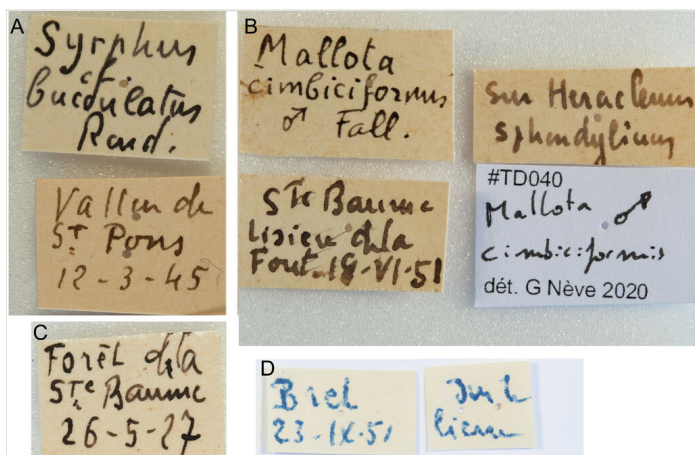 A
Syrphus
cf.
bucculatus
Rond.
Vallon de
St Pons
12-3-45
B
Mallota
cimbiciformis
♂ Fall.
Ste Baume
lisière de la
Fout. 18-VI-51
sur Heracleum
sphondylium
#TD040
Mallota ♂
cimbiciformis
dét. G Nève 2020
C
Forêt de la
Ste Baume
26-5-27
D
Biel
23-IX-51
Sur le
lierre